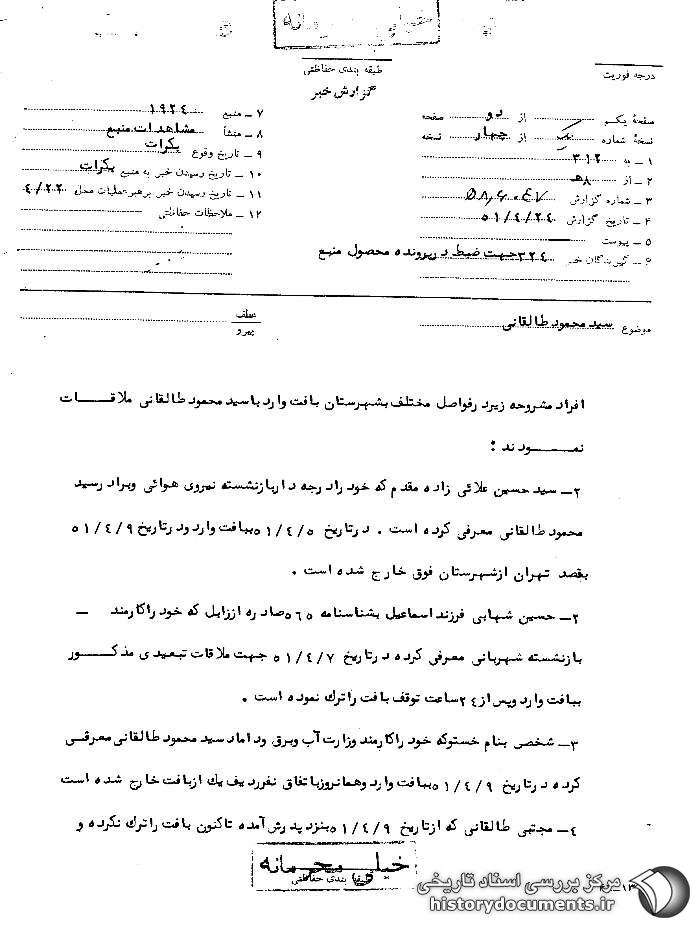 درجه فوریت
طبقه بندی حفاظتی
گزارش خبر
صفحهٔ یکم از دو صفحه
نسخهٔ شماره یک از چهار نسخه
۱ – به ۳۱۲
۲ – از ۸هـ
۳ – شماره گزارش
۴ – تاریخ گزارش ۵۱/۴/۲۴
۵ – پیوست
۶ – گیرندگان خبر ۳۲۴ جهت ضبط در پرونده محصول منبع
۷ – منبع ۱۹۲۴
۸ – منشأ مشاهدات منبع
۹ – تاریخ وقوع بکرات
۱۰ – تاریخ رسیدن خبر به منبع بکرات
۱۱ – تاریخ رسیدن خبر برهبر عملیات محل ۴/۲۲
۱۲ – ملاحظات حفاظتی
موضوع سید محمود طالقانی
عطف
پیرو
افراد مشروحه زیر در فواصل مختلف بشهرستان بافت وارد با سید محمود طالقانی ملاقات
نمودند :
۲– سید حسین علائی زاده مقدم که خود را درجه دار بازنشسته نیروی هوائی و برادر سید
محمود طالقانی معرفی کرده است . در تاریخ ۵۱/۴/۵ ببافت وارد و در تاریخ ۵۱/۴/۹
بقصد تهران از شهرستان فوق خارج شده است .
۲– حسین شهابی فرزند اسماعیل بشناسنامه ۵۶۵ صادره از زابل که خود را کارمند –
بازنشسته شهربانی معرفی کرده در تاریخ ۵۱/۴/۷ جهت ملاقات تبعیدی مذکور
ببافت وارد و پس از ۲۴ ساعت توقف بافت را ترك نموده است .
۳– شخصی بنام خستوکه خود را کارمند وزارت آب و برق و داماد سید محمود طالقانی معرفی
کرده در تاریخ ۵۱/۴/۹ ببافت وارد و همانروز باتفاق نفر ردیف يك از بافت خارج شده است
۴– مجتبی طالقانی که از تاریخ ۵۱/۴/۹ بنزد پدرش آمده تاکنون بافت را ترك نکرده و
خیلی محرمانه
طبقه بندی حفاظتی
مرکز بررسی اسناد تاریخی
historydocuments.ir